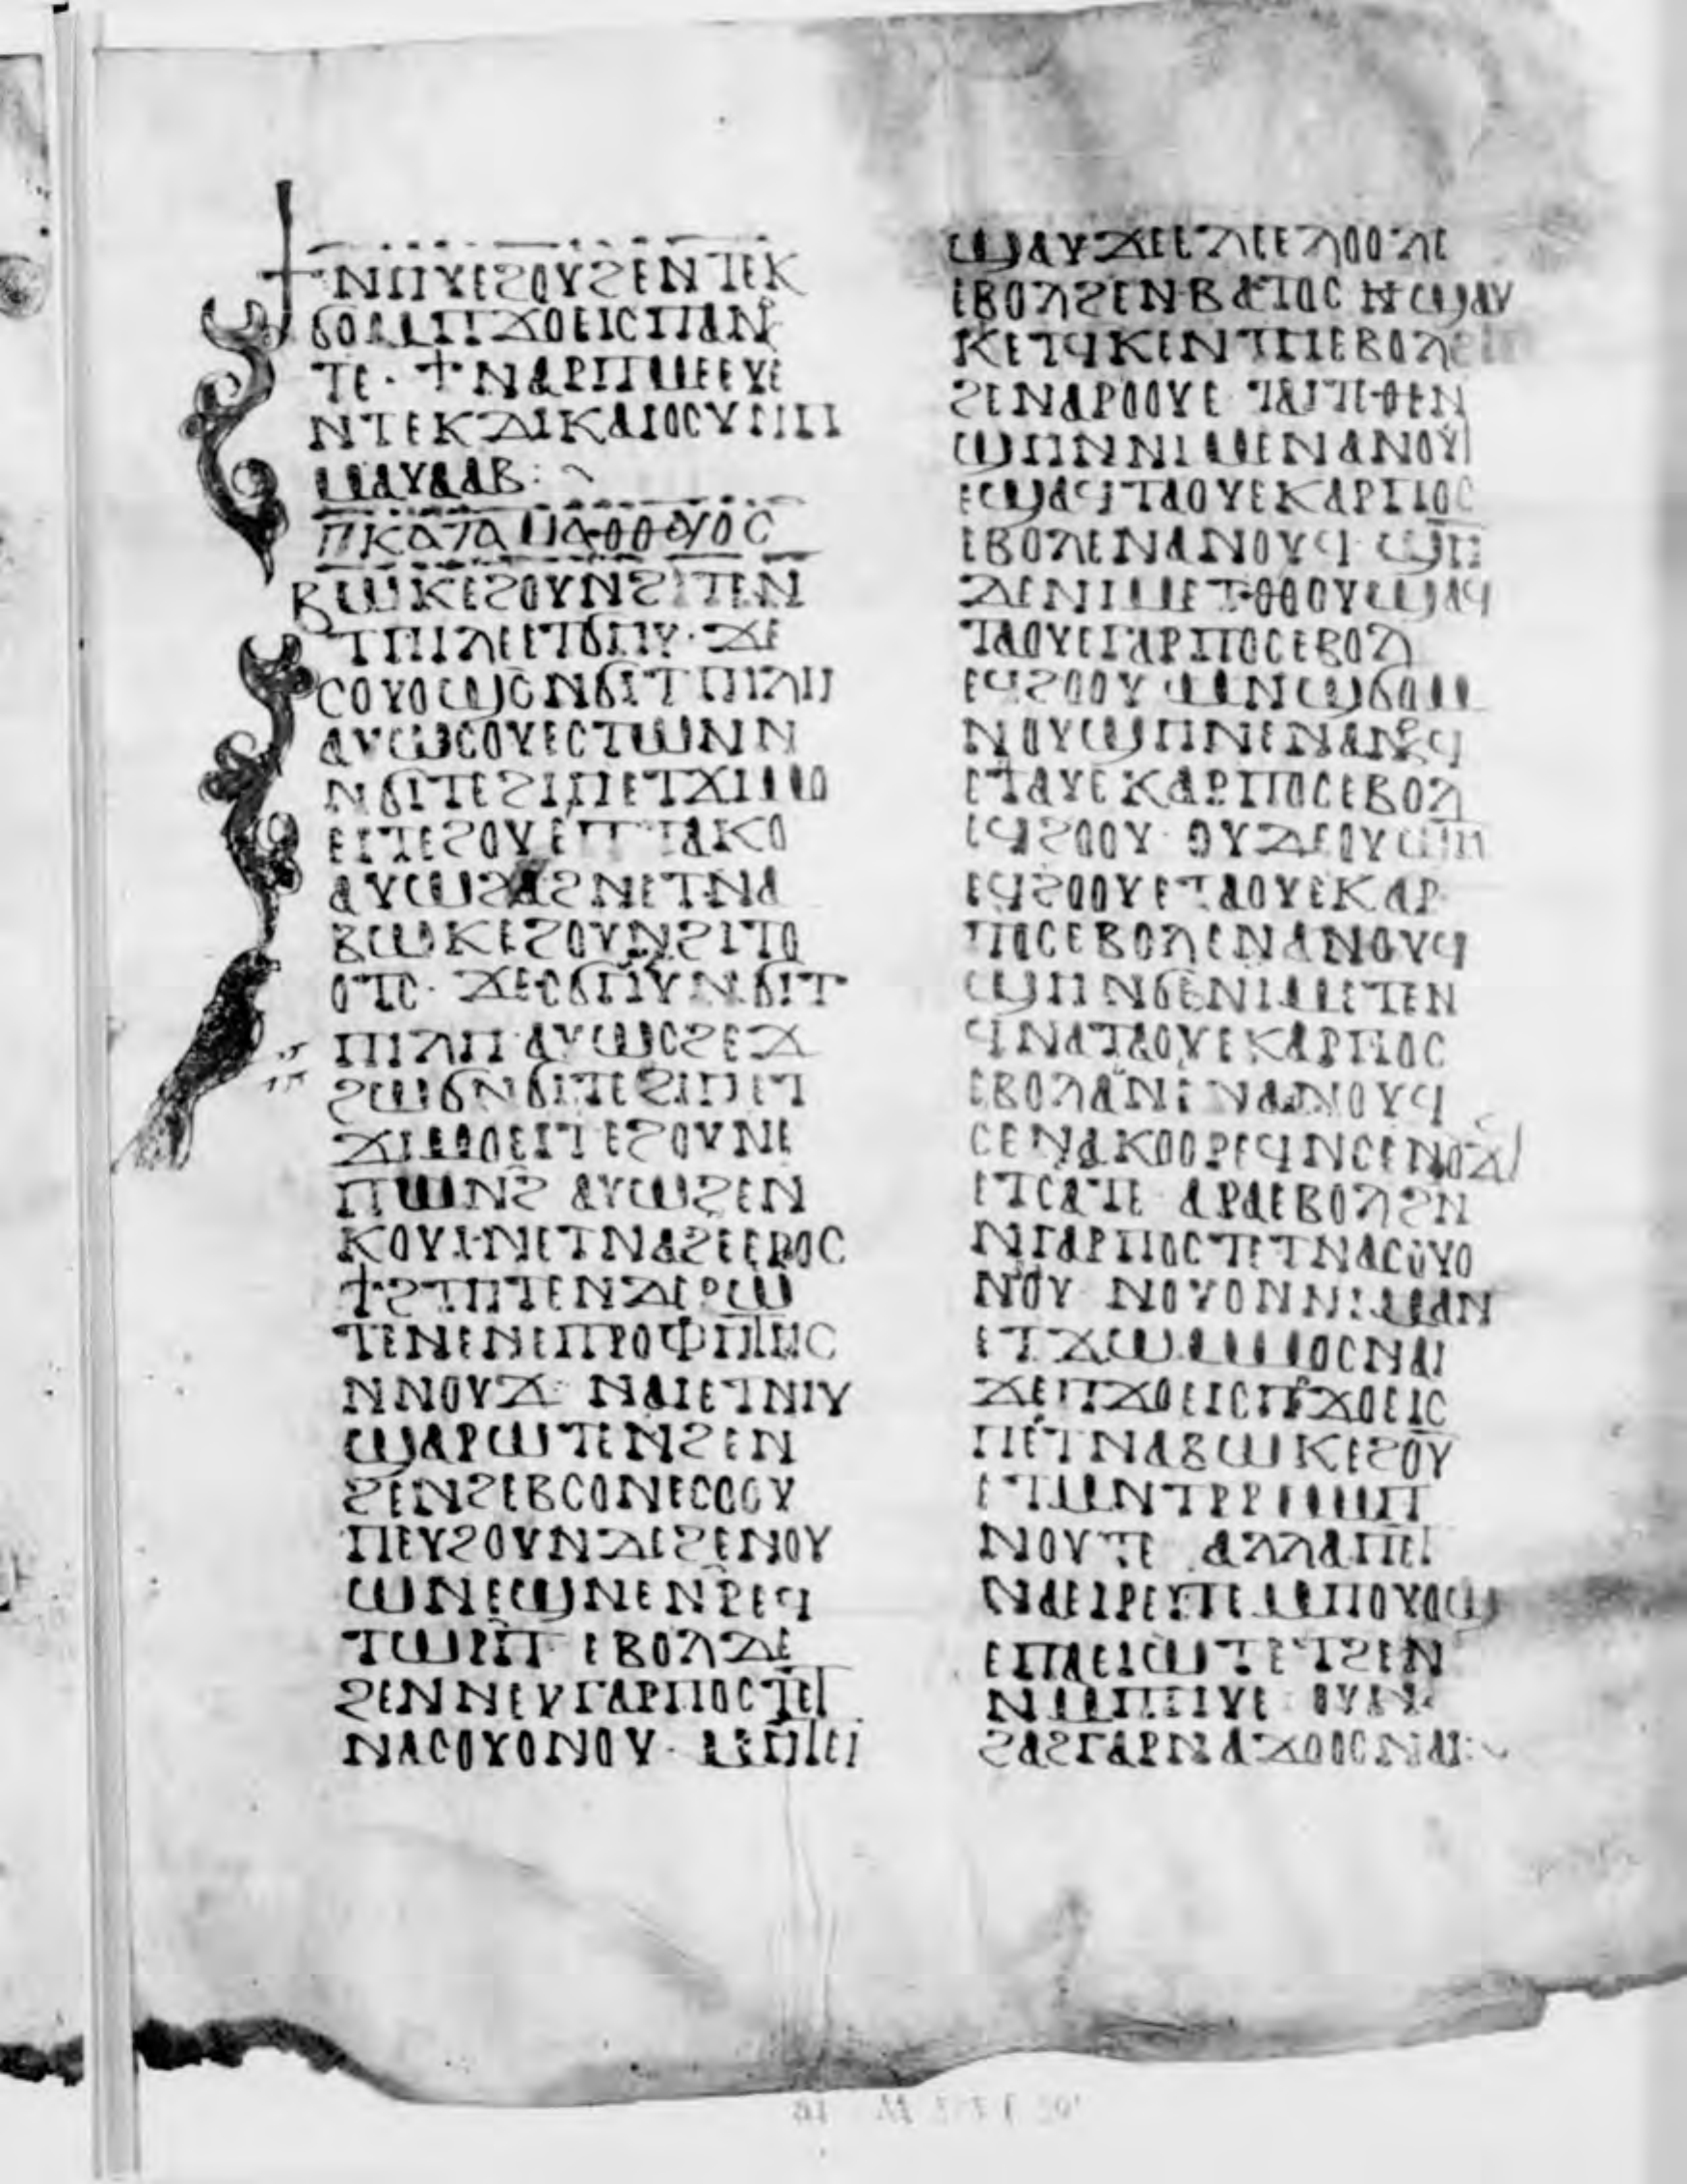 ϯⲛⲏⲩⲉϩⲟⲩϩⲉⲛⲧⲉⲕ
ϭⲟⲙⲡϫⲟⲉⲓⲥⲡⲁⲛⲟⲩ
ⲧⲉ· ϯⲛⲁⲣⲡⲙⲉⲉⲩⲉ
ⲛⲧⲉⲕⲇⲓⲕⲁⲓⲟⲥⲩⲛⲏ
ⲙⲁⲩⲁⲁⲃ:
ⲡⲕⲁⲧⲁⲙⲁⲑⲑⲉⲟⲥ
ⲃⲱⲕⲉϩⲟⲩⲛϩⲓⲧⲉⲛ
ⲧⲡⲓⲗⲉⲉⲧϭⲏⲩ· ϫⲉ
ⲥⲟⲩⲟϣⲥⲛϭⲓⲧⲡⲓⲗⲏ
ⲁⲩⲱⲥⲟⲩⲉⲥⲧⲱⲛⲛ
ⲛϭⲓⲧⲉϩⲓⲏⲉⲧϫⲓⲙⲟ
ⲉⲓⲧⲉϩⲟⲩⲉⲡⲧⲁⲕⲟ
ⲁⲩⲱϩⲁϩⲛⲉⲧⲛⲁ
ⲃⲱⲕⲉϩⲟⲩⲛϩⲓⲧⲟ
ⲟⲧⲥ· ϫⲉⲥϭⲏⲩⲛϭⲓⲧ
ⲡⲓⲗⲏ ⲁⲩⲱⲥϩⲉϫ
ϩⲱϭⲛϭⲓⲧⲉϩⲓⲏⲉⲧ
ϫⲓⲙⲟⲉⲓⲧⲉϩⲟⲩⲛⲉ
ⲡⲱⲛϩ ⲁⲩⲱϩⲉⲛ
ⲕⲟⲩⲓⲛⲉⲧⲛⲁϩⲉⲉⲣⲟⲥ
ϯϩⲧⲏⲧⲉⲛⲇⲉⲣⲱ
ⲧⲉⲛⲉⲛⲉⲡⲣⲟⲫⲏⲧⲏⲥ
ⲛⲛⲟⲩϫ ⲛⲁⲓⲉⲧⲛⲏⲩ
ϣⲁⲣⲱⲧⲉⲛϩⲉⲛ
ϩⲉⲛϩⲉⲃⲥⲟⲛⲉⲥⲟⲟⲩ
ⲡⲉⲩϩⲟⲩⲛⲇⲉϩⲉⲛⲟⲩ
ⲱⲛⲉϣⲛⲉⲛⲣⲉϥ
ⲧⲱⲣⲡ ⲉⲃⲟⲗⲇⲉ
ϩⲉⲛⲛⲉⲩⲅⲁⲣⲡⲟⲥⲧⲉⲧ
ⲛⲁⲥⲟⲩⲟⲛⲟⲩ· ⲙⲏⲧⲉⲓ
ϣⲁⲩϫⲉⲉⲗⲉⲉⲗⲟⲟⲗⲉ
ⲉⲃⲟⲗϩⲉⲛⲃⲁⲧⲟⲥ ⲏϣⲁⲩ
ⲕⲉⲧϥⲕⲉⲛⲧⲏⲉⲃⲟⲗ
ϩⲉⲛⲁⲣⲟⲟⲩⲉ ⲧⲁⲓⲧⲉⲑⲉⲛ
ϣⲏⲛⲛⲓⲙⲉⲛⲁⲛⲟⲩ
ⲉϣⲁϥⲧⲁⲟⲩⲉⲕⲁⲣⲡⲟⲥ
ⲉⲃⲟⲗⲉⲛⲁⲛⲟⲩϥ ϣⲏ
ⲇⲉⲛⲓⲙⲉⲧⲑⲟⲟⲩϣⲁϥ
ⲧⲁⲟⲩⲉⲅⲁⲣⲡⲟⲥⲉⲃⲟⲗ
ⲉϥϩⲟⲟⲩ ⲙⲛⲱϭⲟⲙ
ⲛⲟⲩϣⲏⲛⲉⲛⲁⲛⲟⲩϥ
ⲉⲧⲁⲩⲉⲕⲁⲣⲡⲟⲥⲉⲃⲟⲗ
ⲉϥϩⲟⲟⲩ· ⲟⲩⲇⲉⲟⲩϣⲏ
ⲉϥϩⲟⲟⲩⲉⲧⲁⲟⲩⲉⲕⲁⲣ
ⲡⲟⲥⲉⲃⲟⲗⲉⲛⲁⲛⲟⲩϥ
ϣⲏⲛϭⲉⲛⲓⲙⲉⲧⲉⲛ
ϥⲛⲁⲧⲁⲟⲩⲉⲕⲁⲣⲡⲟⲥ
ⲉⲃⲟⲗⲁⲛⲉⲛⲁⲛⲟⲩϥ
ⲥⲉⲛⲁⲕⲟⲟⲣⲉϥⲛⲥⲉⲛⲟϫ
ⲉⲧⲥⲁⲧⲉ ⲁⲣⲁⲉⲃⲟⲗϩⲛ
ⲛⲓⲅⲁⲣⲡⲟⲥⲧⲉⲧⲛⲁⲥⲟⲩⲟ
ⲛⲟⲩ ⲛⲟⲩⲟⲛⲛⲓⲙⲁⲛ
ⲉⲧϫⲱⲙⲙⲟⲥⲛⲁⲓ
ϫⲉⲡϫⲟⲉⲓⲥⲡϫⲟⲉⲓⲥ
ⲡⲉⲧⲛⲁⲃⲱⲕⲉϩⲟⲩ
ⲉⲧⲙⲛⲧⲣⲣⲙⲡ
ⲛⲟⲩⲧⲉ ⲁⲗⲗⲁⲡⲉⲧ
ⲛⲁⲉⲓⲣⲉⲡⲉⲙⲡⲟⲩⲟϣ
ⲉⲡⲁⲉⲓⲱⲧⲉⲧϩⲉⲛ
ⲛⲙⲡⲏⲩⲉ ⲟⲩⲛ
ϩⲁϩⲅⲁⲣⲛⲁϫⲟⲟⲥⲛⲁⲓ: